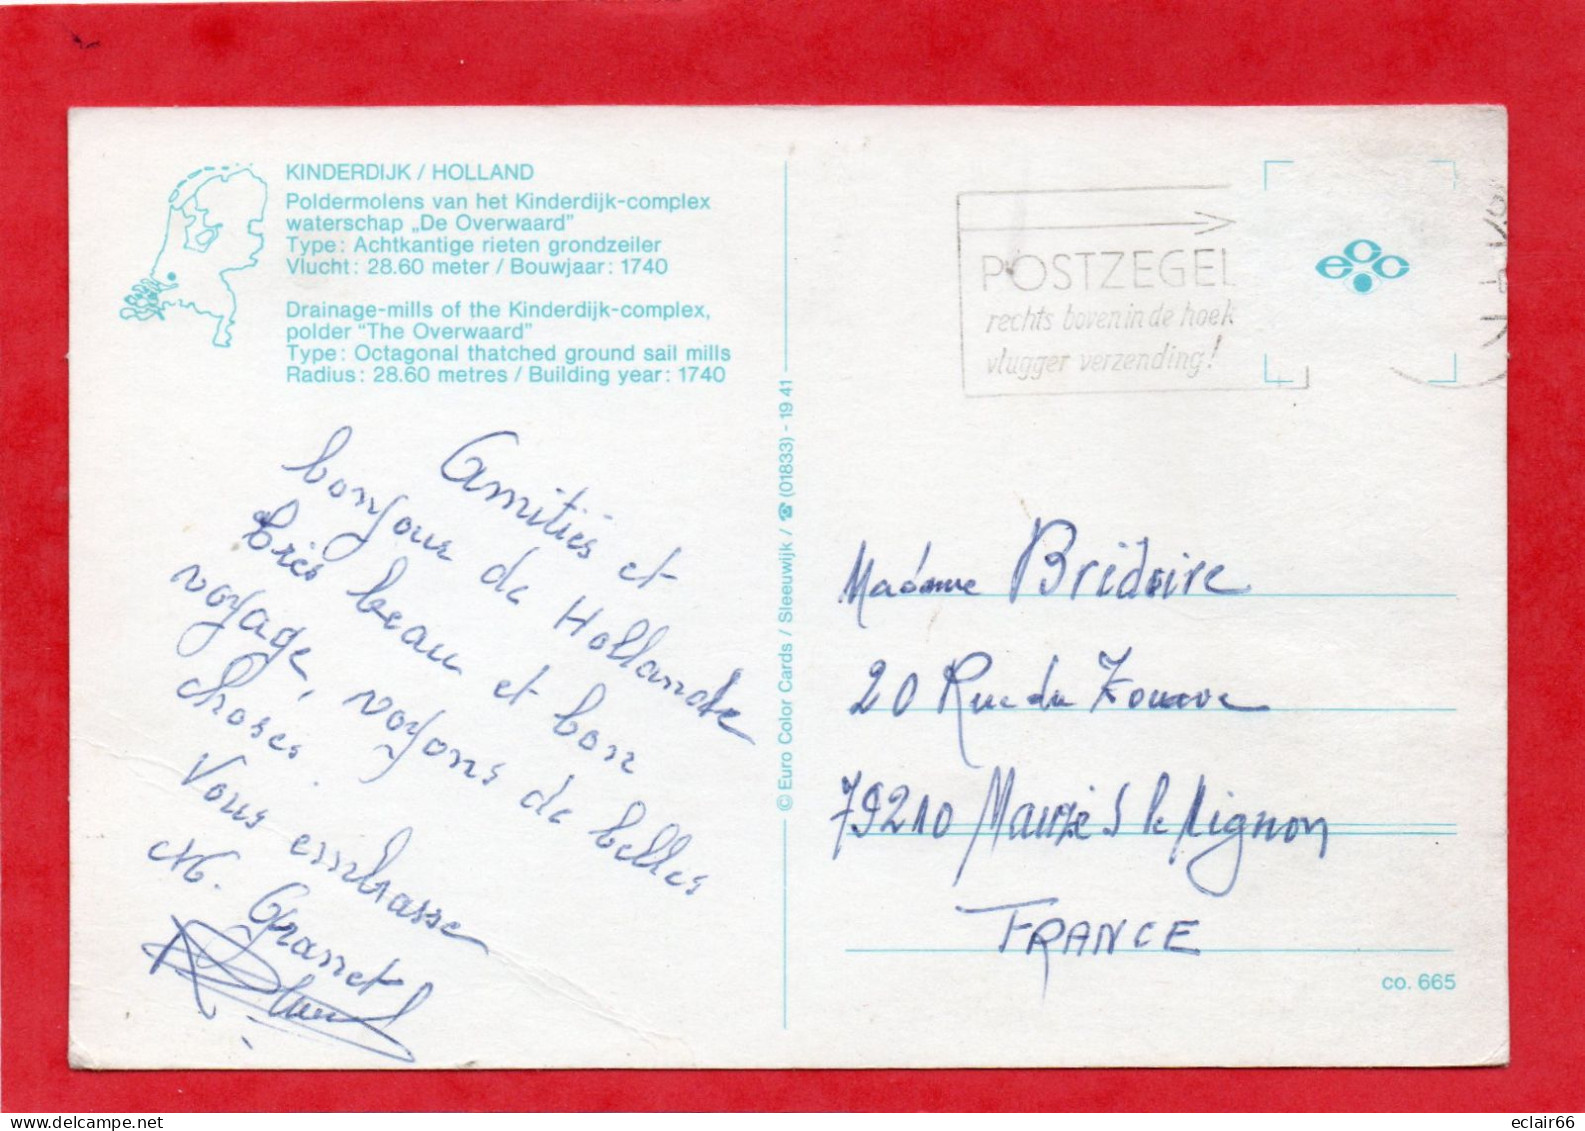 KINDERDIJK / HOLLAND
Poldermolens van het Kinderdijk-complex
waterschap „De Overwaard”
Type: Achtkantige rieten grondzeiler
Vlucht: 28.60 meter / Bouwjaar: 1740
Drainage-mills of the Kinderdijk-complex,
polder “The Overwaard”
Type: Octagonal thatched ground sail mills
Radius: 28.60 metres / Building year: 1740
Amitiés et
bonjour de Hollande
très beau et bon
voyage, voyons de belles
choses.
Vous embrasse
M. Granet
© Euro Color Cards / Sleeuwijk / ☎ (01833) - 19 41
POSTZEGEL
rechts boven in de hoek
vlugger verzending!
ecc
Madame Bridoire
20 Rue du Zouave
79210 Mauzé S le Mignon
FRANCE
co. 665
www.delcampe.net
eclair66